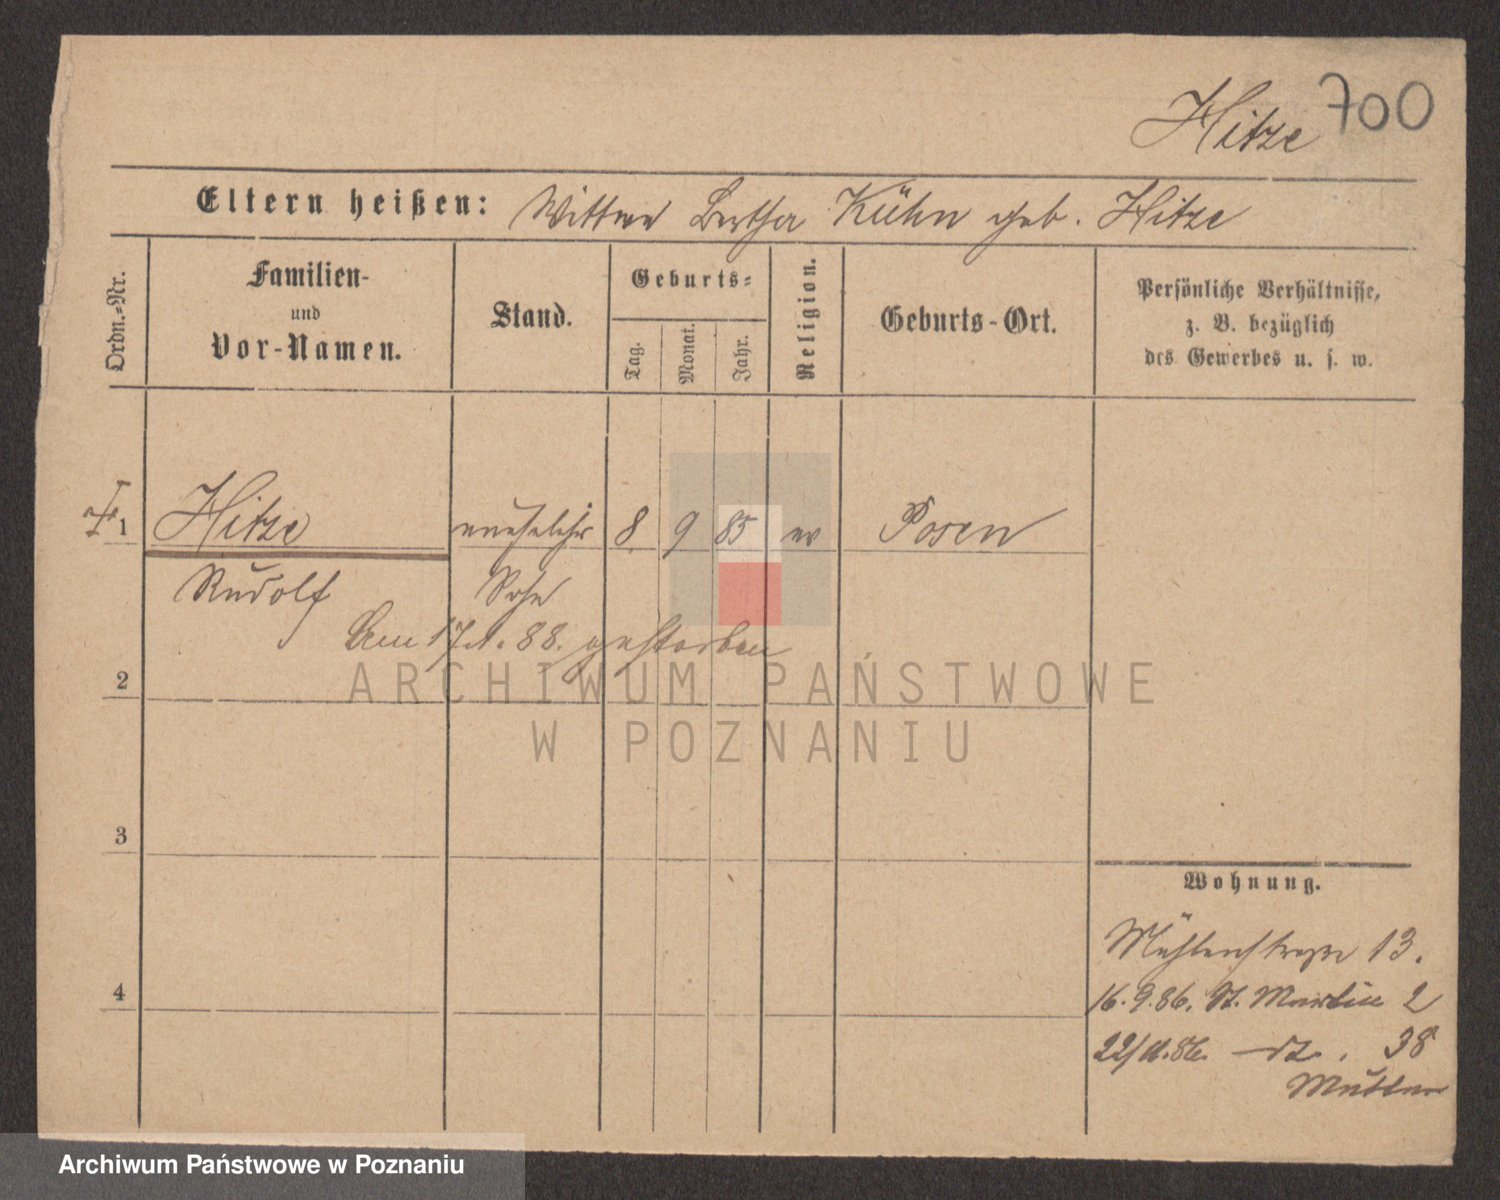 Hitze 700
Eltern heißen: Wittwe Bertha Kühn geb. Hitze
Ordn.-Nr.
Familien-
und
Vor-Namen.
Stand.
Geburts-
Tag.
Monat.
Jahr.
Religion.
Geburts-Ort.
Persönliche Verhältnisse,
z. B. bezüglich
des Gewerbes u. s. w.
1 Hitze unehelicher 8 9 85 ev Posen
Rudolf Sohn
Am 17.1.88. gestorben
2
ARCHIWUM PAŃSTWOWE
W POZNANIU
3
Wohnung.
Mühlenstraße 13.
4
16.9.86. St. Martin 2
38
Mutter
Archiwum Państwowe w Poznaniu